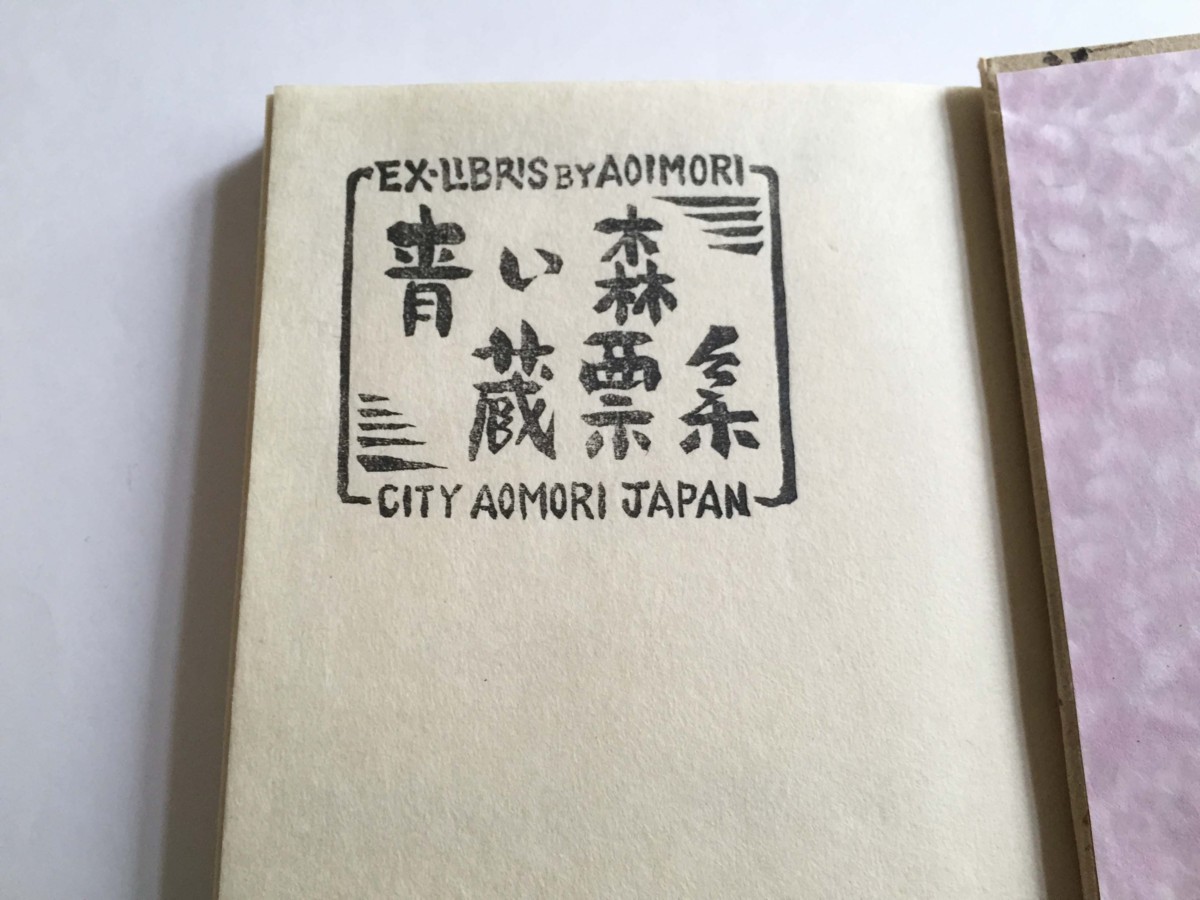 EX-LIBRIS BY AOIMORI
青い森
蔵票集
CITY AOMORI JAPAN